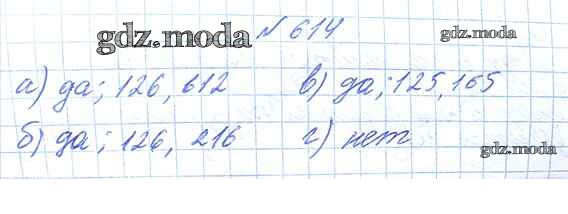 gdz.moda № 614 gdz.moda
а) да; 126, 612 в) да; 125, 165
б) да; 126, 216 г) нет
gdz.moda gdz.moda